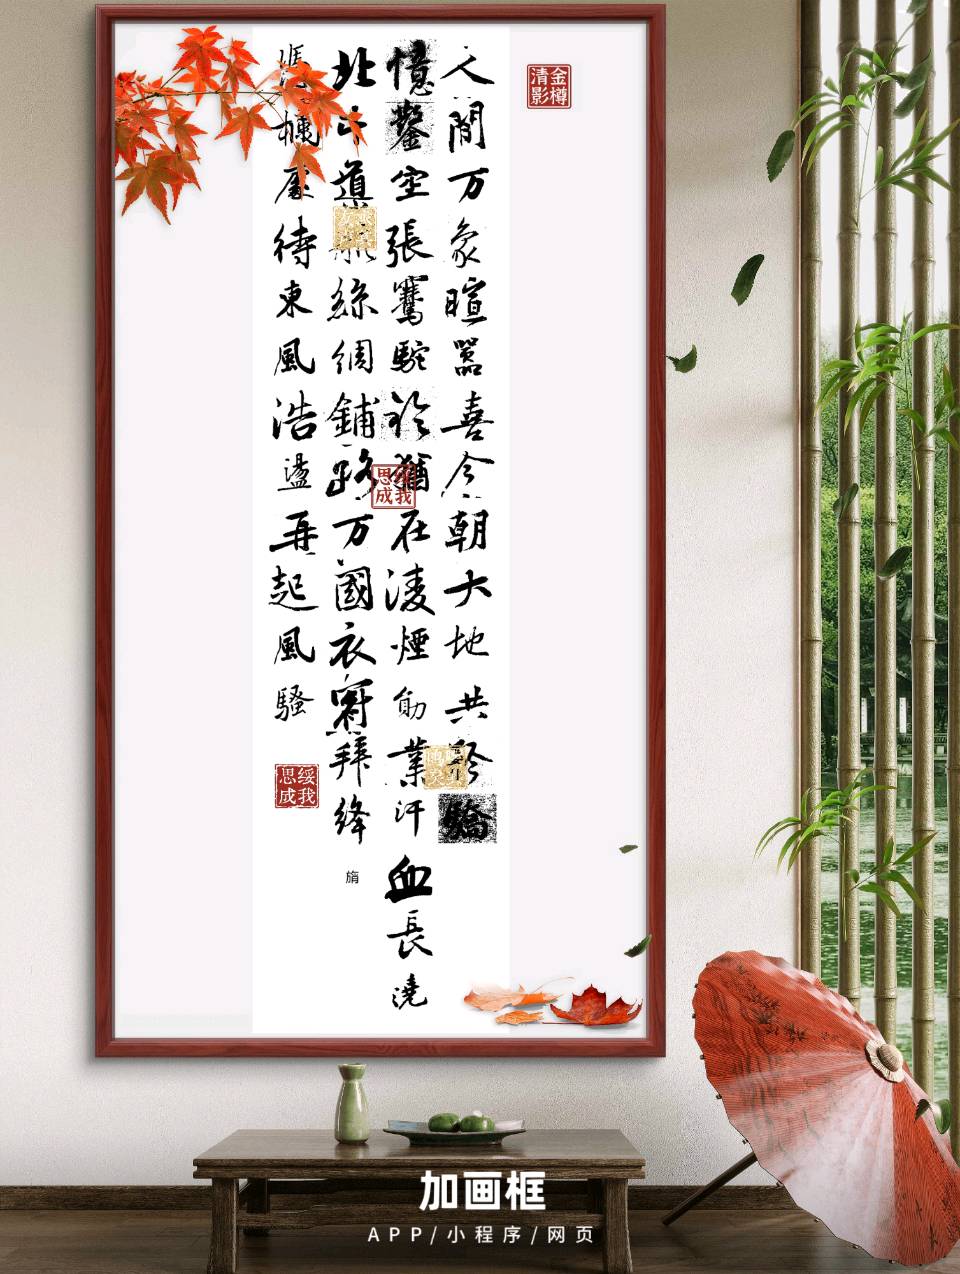 金樽清影
人間万象暄囂喜今朝大地共驕
憶鑿空張騫駝鈴猶在淩煙勛業汗血長澆
北斗導航絲綢鋪路万國衣冠拜絳旓
應待東風浩盪再起風騷
绥我思成
绥我思成
加画框
APP/小程序/网页